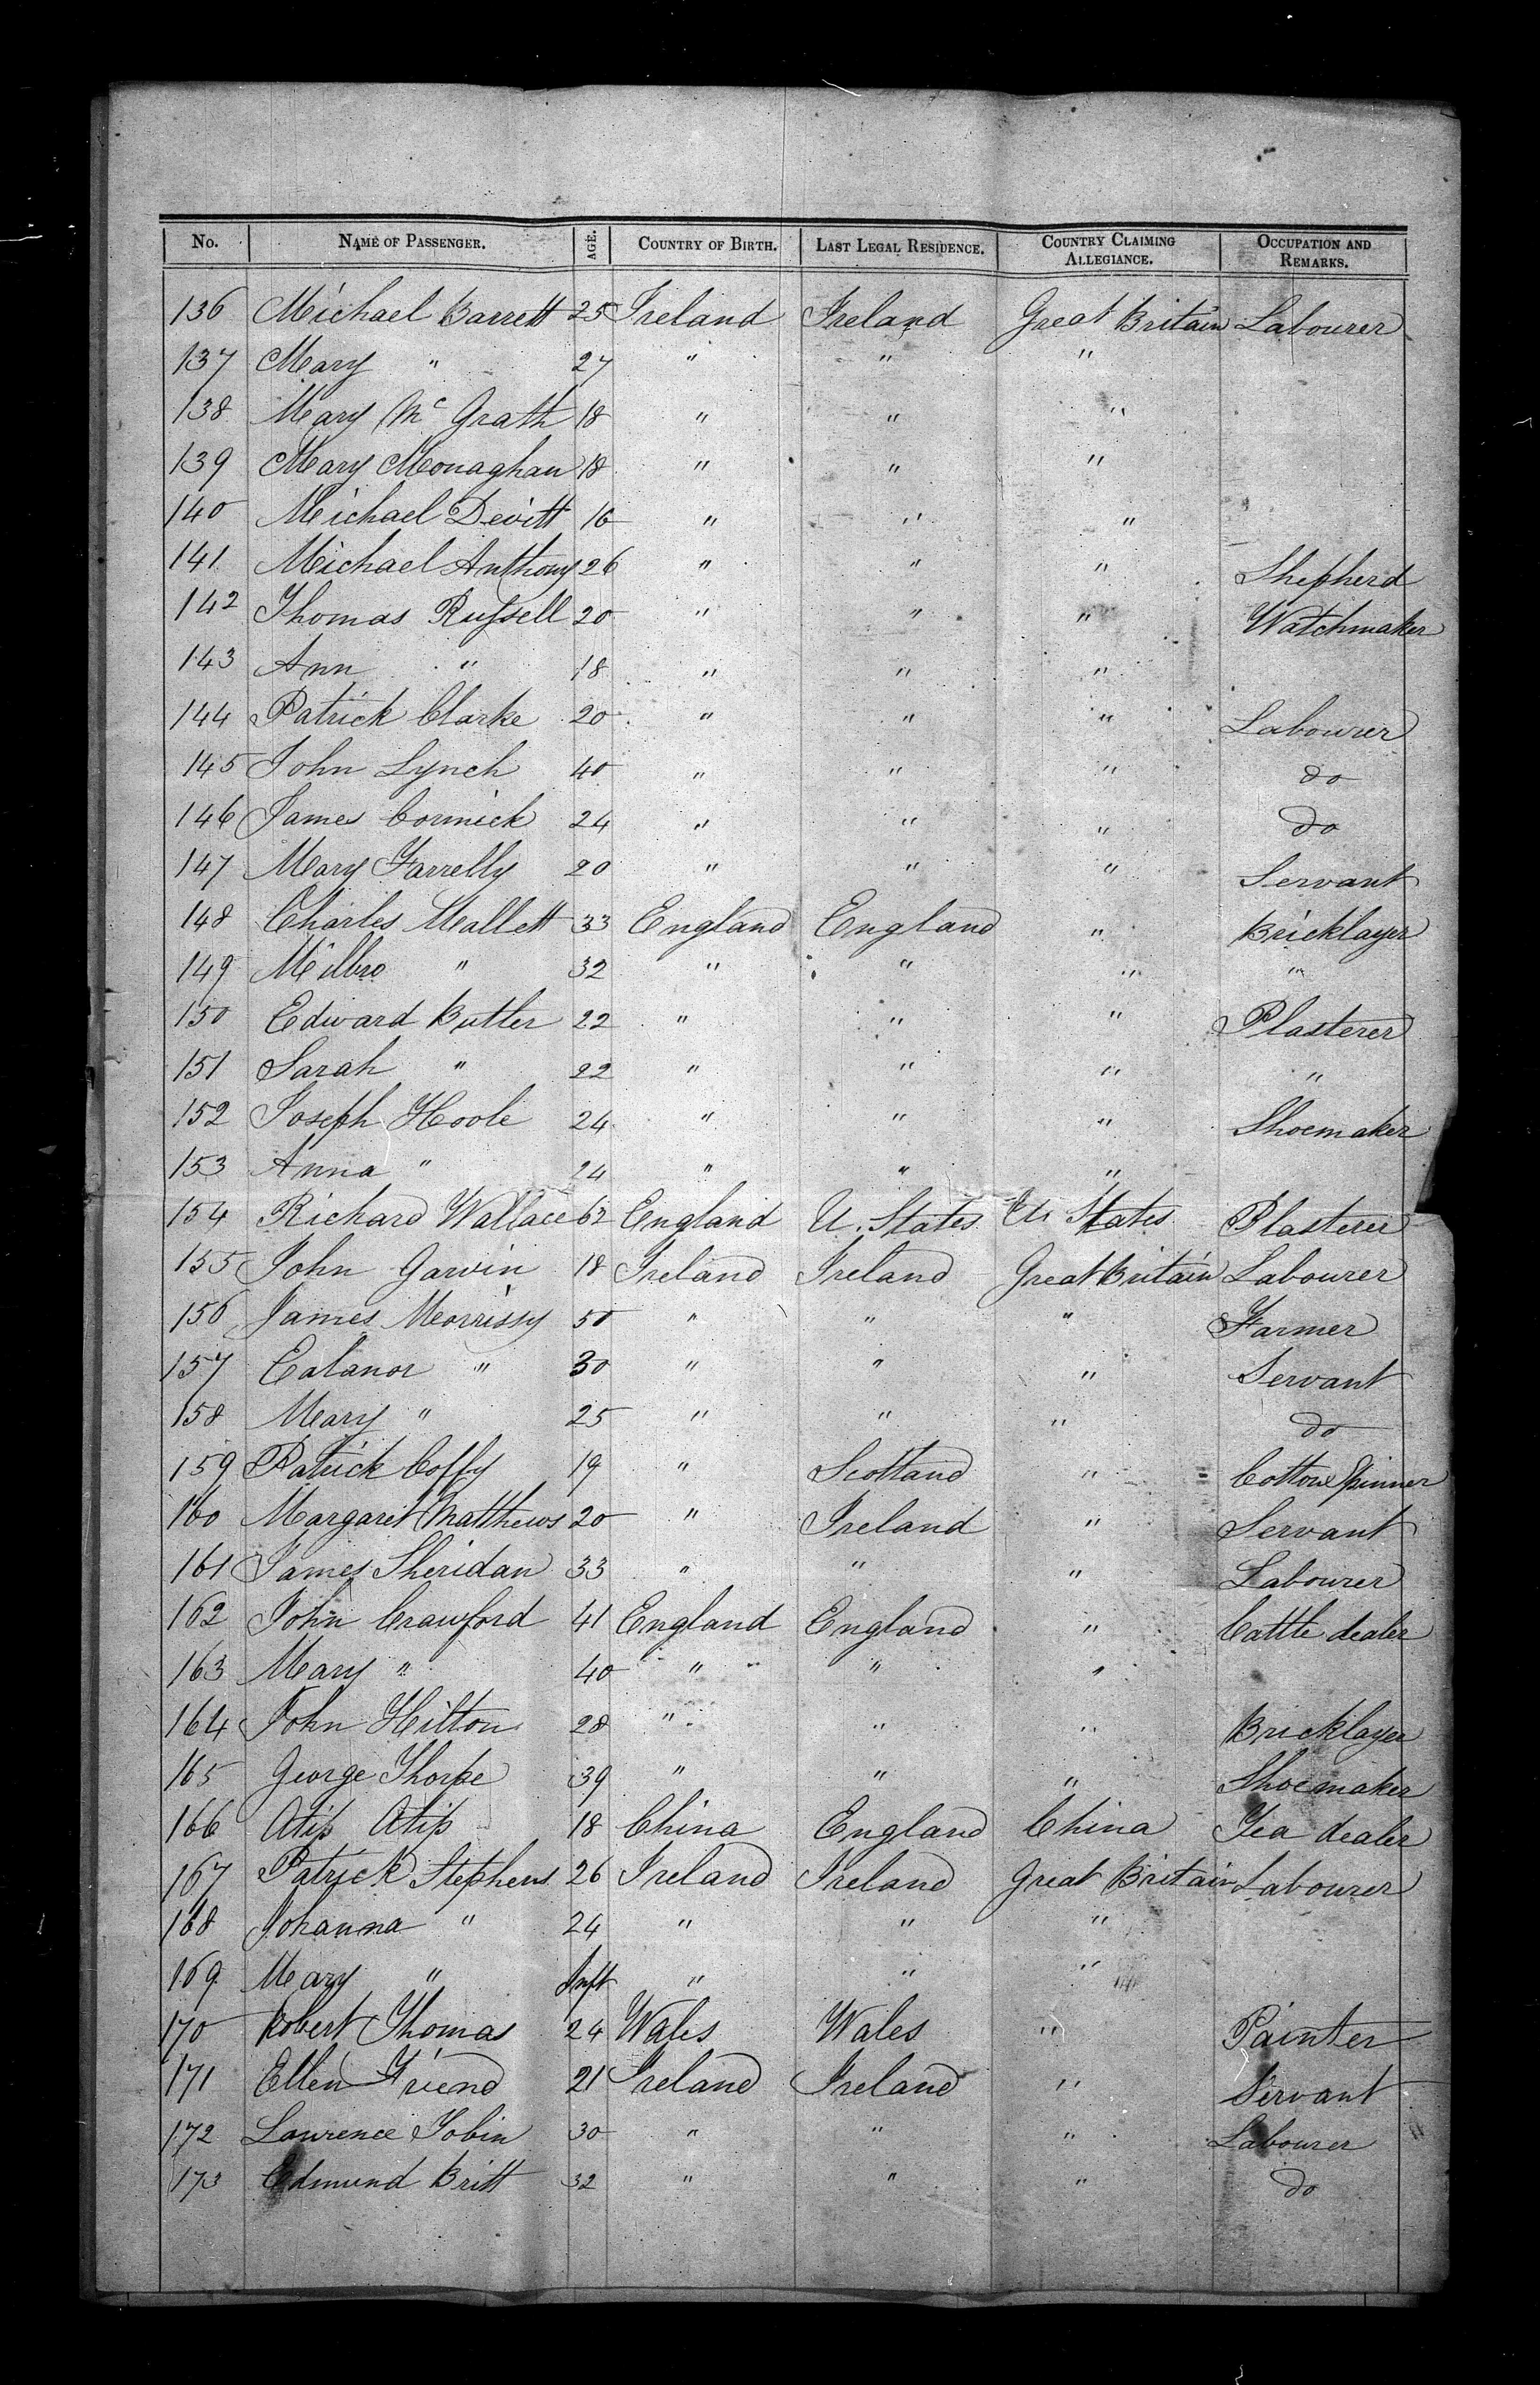 No. NAME OF PASSENGER. AGE. COUNTRY OF BIRTH. LAST LEGAL RESIDENCE. COUNTRY CLAIMING ALLEGIANCE. OCCUPATION AND REMARKS.
136 Michael Barrett 25 Ireland Ireland Great Britain Labourer
137 Mary " 27 " " "
138 Mary Mc Grath 18 " " "
139 Mary Monaghan 18 " " "
140 Michael Devitt 16 " " "
141 Michael Anthony 26 " " " Shepherd
142 Thomas Russell 20 " " " Watchmaker
143 Ann " 18 " " "
144 Patrick Clarke 20 " " " Labourer
145 John Lynch 40 " " " do
146 James Cormick 24 " " " do
147 Mary Farrelly 20 " " " Servant
148 Charles Mallett 33 England England " Bricklayer
149 Milbro " 32 " " " "
150 Edward Butler 22 " " " Plasterer
151 Sarah " 22 " " " "
152 Joseph Hoole 24 " " " Shoemaker
153 Anna " 24 " " "
154 Richard Wallace 62 England U. States U. States Plasterer
155 John Garvin 18 Ireland Ireland Great Britain Labourer
156 James Morrissy 50 " " " Farmer
157 Ealanor " 30 " " " Servant
158 Mary " 25 " " " do
159 Patrick Coffy 19 " Scotland " Cotton Spinner
160 Margaret Matthews 20 " Ireland " Servant
161 James Sheridan 33 " " " Labourer
162 John Crawford 41 England England " Cattle dealer
163 Mary " 40 " " "
164 John Hilton 28 " " " Bricklayer
165 George Thorpe 39 " " " Shoemaker
166 Atip Atip 18 China England China Tea dealer
167 Patrick Stephens 26 Ireland Ireland Great Britain Labourer
168 Johanna " 24 " " "
169 Mary " Inft " " "
170 Robert Thomas 24 Wales Wales " Painter
171 Ellen Friend 21 Ireland Ireland " Servant
172 Lawrence Tobin 30 " " " Labourer
173 Edmund Britt 32 " " " do